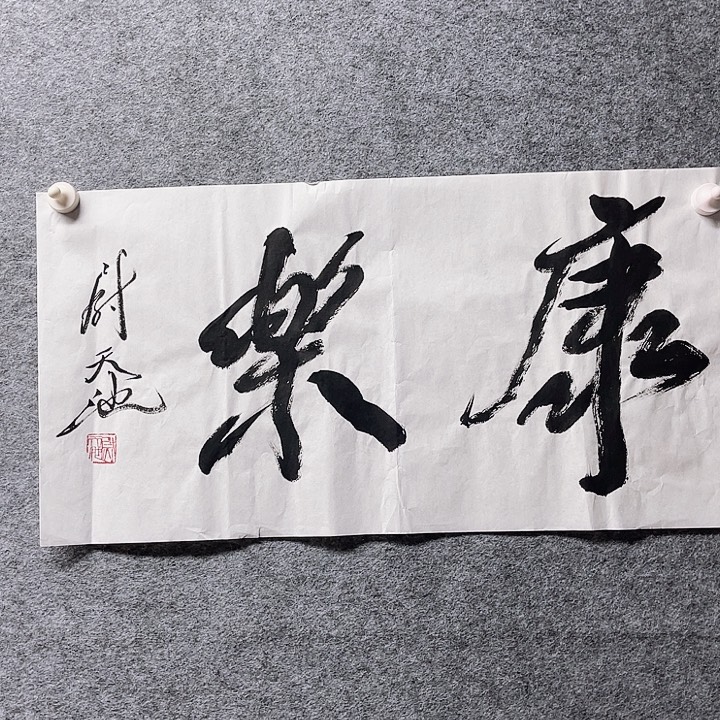 康樂
尉天池